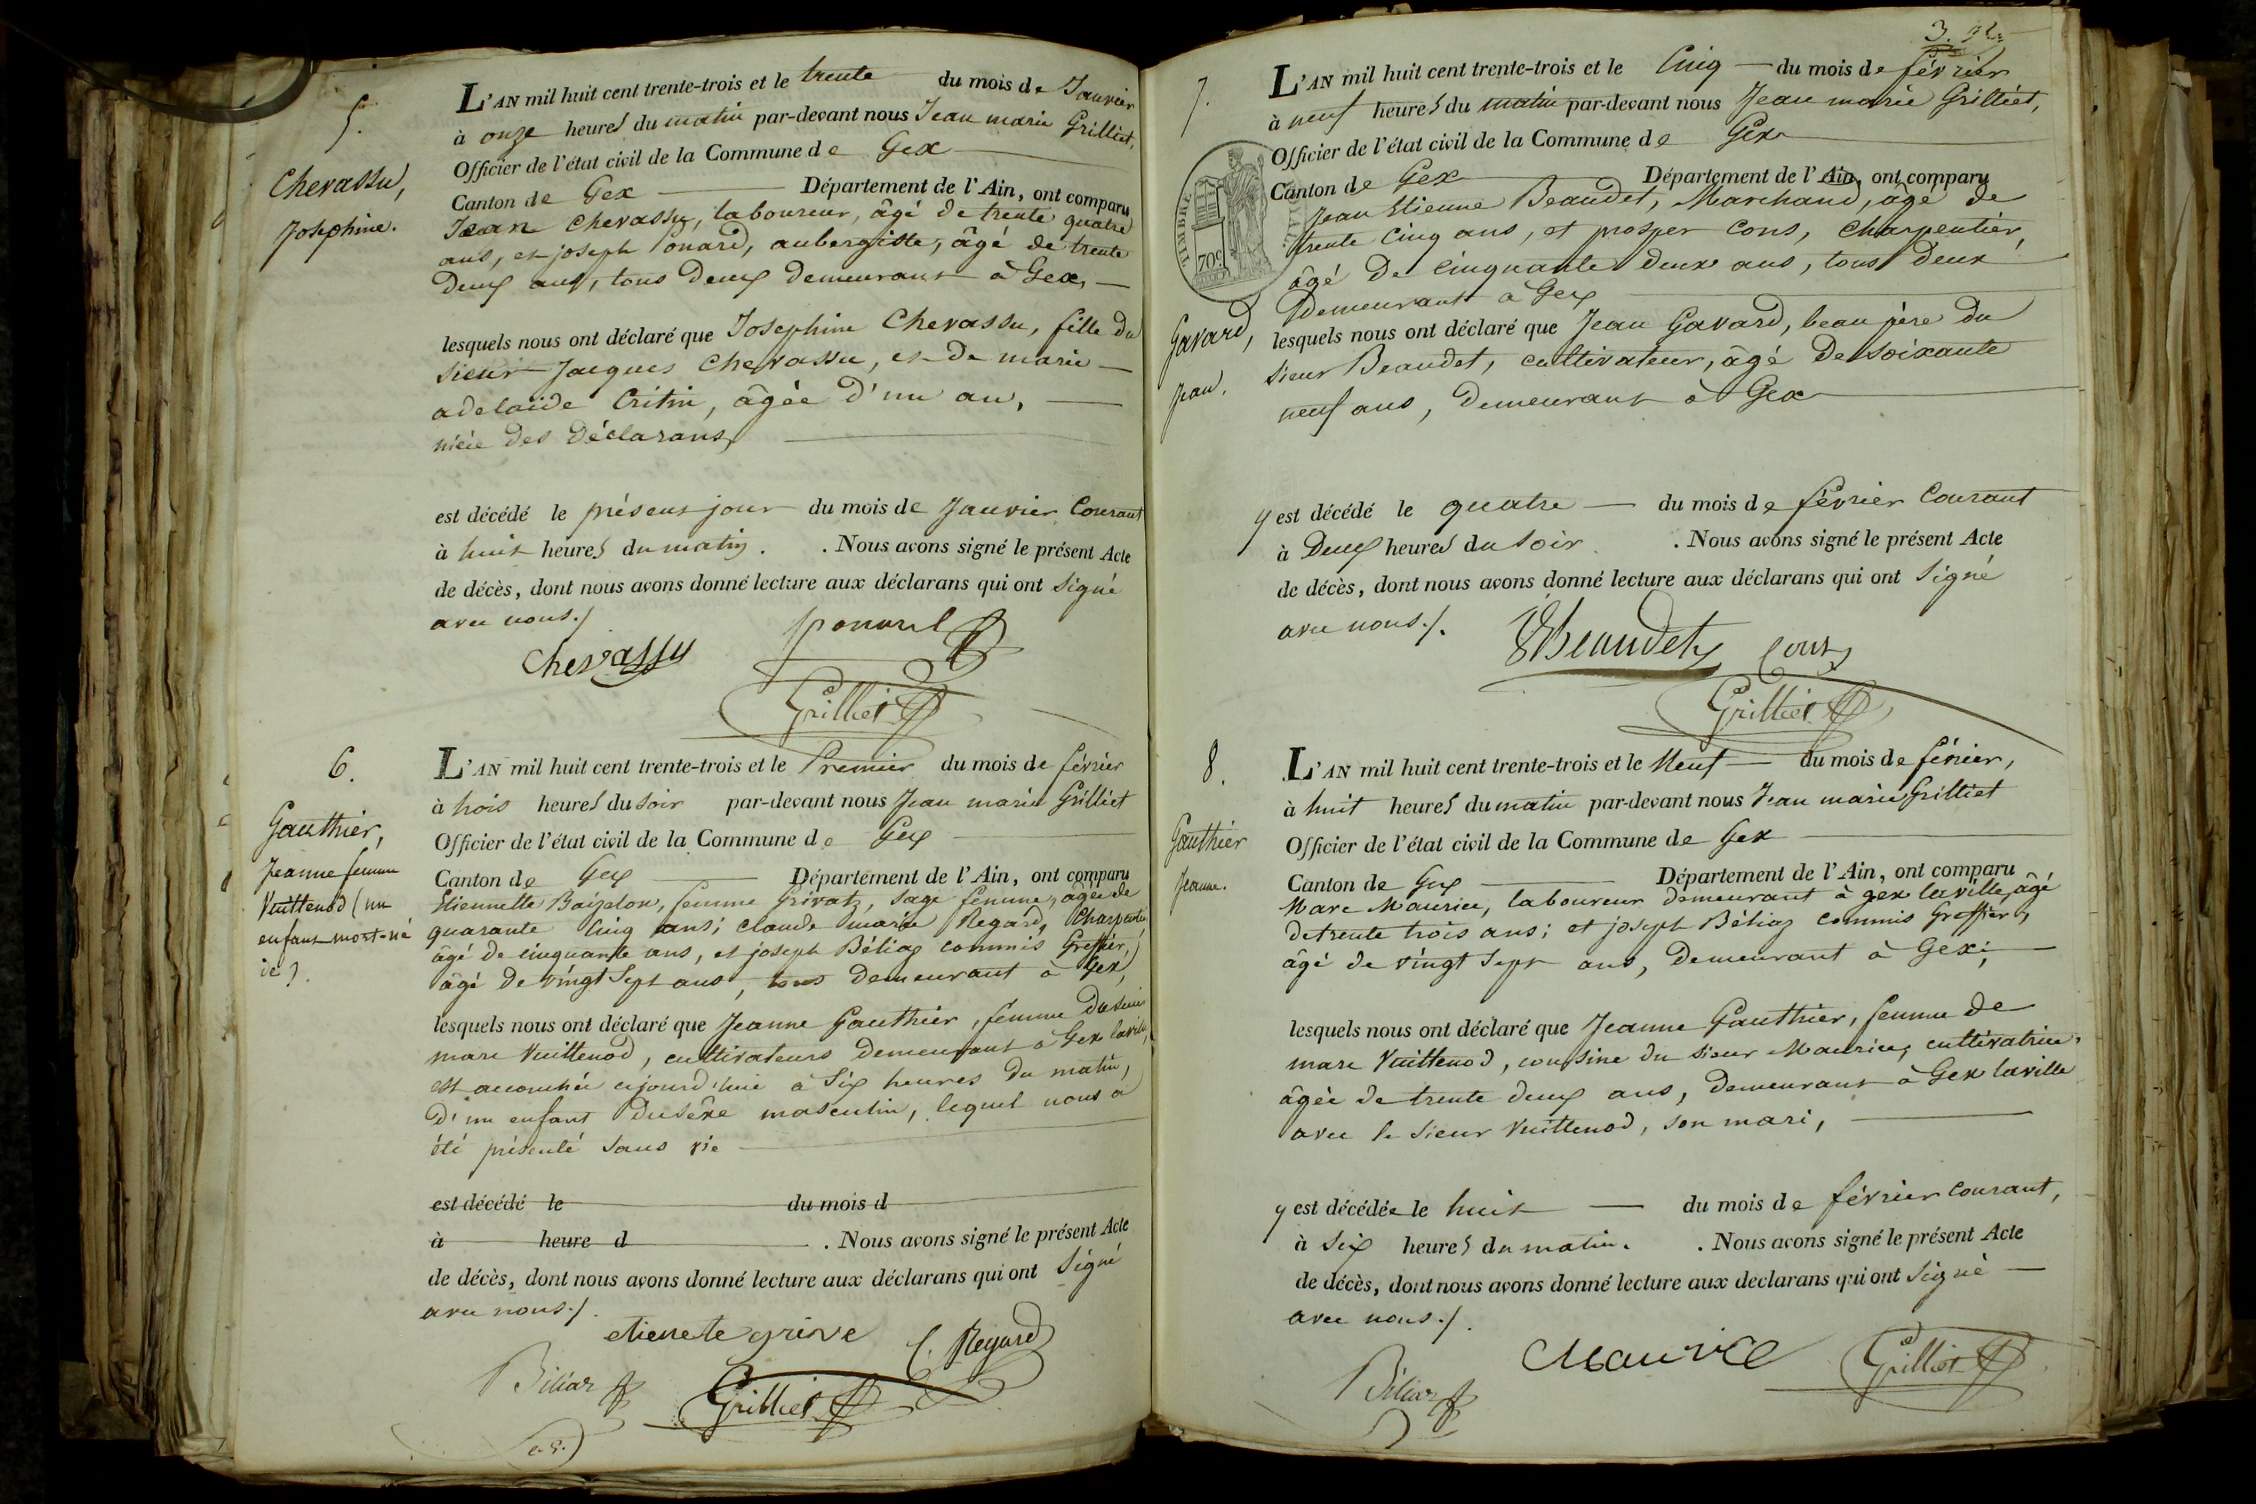 5.
Chevassu,
Josephine.
L'AN mil huit cent trente-trois et le trente du mois de Janvier
à onze heures du matin par-devant nous Jean marie Grilliet,
Officier de l'état civil de la Commune de Gex
Canton de Gex Département de l'Ain, ont comparu
Jean Chevassu, laboureur, âgé de trente quatre
ans, et joseph Ponard, aubergiste, âgé de trente
Deux ans, tous deux demeurant à Gex,
lesquels nous ont déclaré que Josephine Chevassu, fille du
sieur Jacques Chevassu, et de marie
adelaïde Critin, âgée d'un an,
nièce des Déclarans,
est décédé le présent jour du mois de Janvier Courant
à huit heures du matin. . Nous avons signé le présent Acte
de décès, dont nous avons donné lecture aux déclarans qui ont signé
avec nous./
Chevassu Jponard
Grilliet
6.
Gauthier,
Jeanne femme
Vuittenod (un
enfant mort-né
L'AN mil huit cent trente-trois et le Premier du mois de février
à trois heures du soir par-devant nous Jean marie Grilliet
Officier de l'état civil de la Commune de Gex
Canton de Gex Département de l'Ain, ont comparu
Etiennette Baizelon, femme Grivat, sage femme, âgée de
quarante Cinq ans; claude marie Regard, Charpentier
âgé de cinquante ans, et joseph Béliaz commis Greffier,
âgé de vingt Sept ans, tous demeurant à Gex,
lesquels nous ont déclaré que Jeanne Gauthier, femme du sieur
marc Vuittenod, cultivateurs demeurant à Gex laville,
est accouchée cejourd'hui à Six heures du matin,
D'un enfant Du sexe masculin, lequel nous a
été présenté sans vie
est décédé le du mois d
à heure d . Nous avons signé le présent Acte
de décès, dont nous avons donné lecture aux déclarans qui ont Signé
avec nous./.
etienete grive C. Regard
Béliaz Grilliet
7.
Gavard,
Jean.
TIMBRE
70c
3.
L'AN mil huit cent trente-trois et le Cinq du mois de février
à neuf heures du matin par-devant nous Jean marie Grilliet,
Officier de l'état civil de la Commune de Gex
Canton de Gex Département de l'Ain, ont comparu
Jean Etienne Beaudet, Marchand, âgé de
trente Cinq ans, et prosper Cons, Charpentier,
âgé De Cinquante deux ans, tous deux
Demeurant à Gex
lesquels nous ont déclaré que Jean Gavard, beau père du
sieur Beaudet, cultivateur, âgé de soixante
neuf ans, Demeurant à Gex
y est décédé le quatre du mois de février Courant
à Deux heures du soir . Nous avons signé le présent Acte
de décès, dont nous avons donné lecture aux déclarans qui ont Signé
avec nous./.
Beaudet Cons
Grilliet
8.
Gauthier
Jeanne.
L'AN mil huit cent trente-trois et le Neuf du mois de février,
à huit heures du matin par-devant nous Jean marie Grilliet
Officier de l'état civil de la Commune de Gex
Canton de Gex Département de l'Ain, ont comparu
Marc Maurice, laboureur demeurant à gex laville, âgé
de trente trois ans; et joseph Béliaz commis Greffier,
âgé de vingt Sept ans, Demeurant à Gex;
lesquels nous ont déclaré que Jeanne Gauthier, femme de
marc Vuittenod, cousine du sieur Maurice, cultivatrice,
âgée de trente deux ans, Demeurant à Gex laville
avec le Sieur Vuittenod, son mari,
y est décédée le huit du mois de février courant,
à Six heures du matin. . Nous avons signé le présent Acte
de décès, dont nous avons donné lecture aux declarans qui ont Signé
avec nous./.
Maurice Grilliet
Béliaz